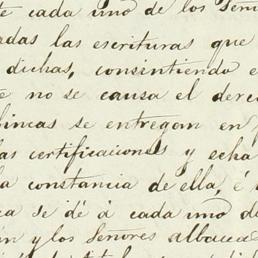 te cada uno de los Seño
adas las escrituras que
dichas, consintiendo e
no se causa el derec
fincas se entregan en p
las certificaciones y echa
la constancia de ella, é
ca se dé á cada uno d
n y los Señores albacea